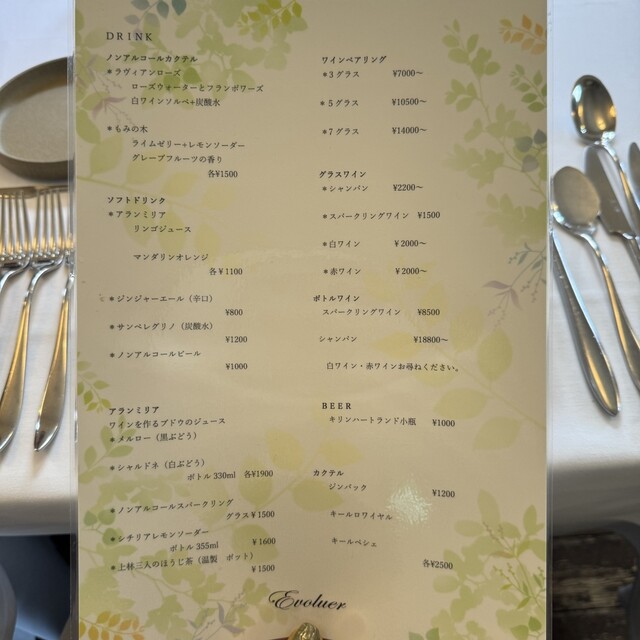 DRINK
ノンアルコールカクテル
＊ラヴィアンローズ
ローズウォーターとフランボワーズ
白ワインソルベ+炭酸水
＊もみの木
ライムゼリー+レモンソーダー
グレープフルーツの香り
各¥1500
ソフトドリンク
＊アランミリア
リンゴジュース
マンダリンオレンジ
各¥1100
＊ジンジャーエール（辛口）
¥800
＊サンペレグリノ（炭酸水）
¥1200
＊ノンアルコールビール
¥1000
アランミリア
ワインを作るブドウのジュース
＊メルロー（黒ぶどう）
＊シャルドネ（白ぶどう）
ボトル 330ml 各¥1900
＊ノンアルコールスパークリング
グラス¥1500
＊シチリアレモンソーダー
ボトル 355ml ¥1600
＊上林三人のほうじ茶（温製 ポット）
¥1500
ワインペアリング
＊3グラス ¥7000～
＊5グラス ¥10500～
＊7グラス ¥14000～
グラスワイン
＊シャンパン ¥2200～
＊スパークリングワイン ¥1500
＊白ワイン ¥2000～
＊赤ワイン ¥2000～
ボトルワイン
スパークリングワイン ¥8500
シャンパン ¥18800～
白ワイン・赤ワインお尋ねください。
BEER
キリンハートランド小瓶 ¥1000
カクテル
ジンバック
¥1200
キールロワイヤル
キールペシェ
各¥2500
Evoluer